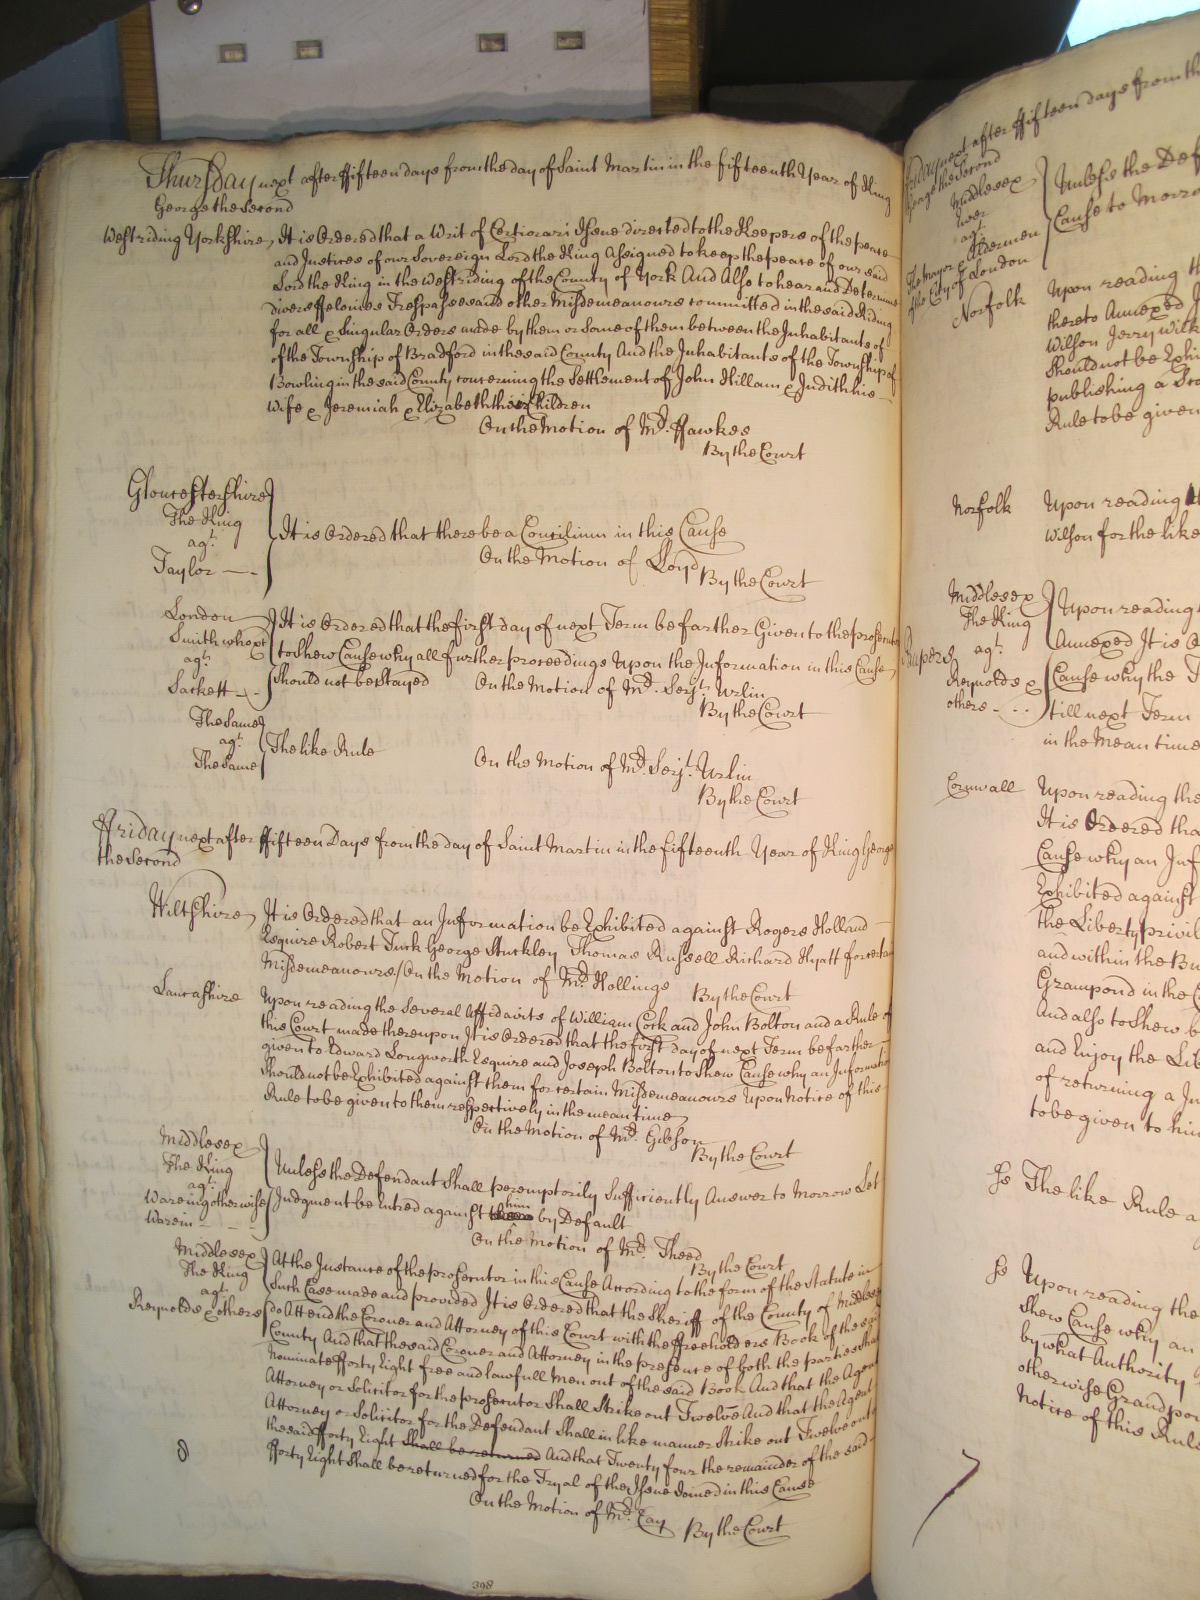 Thursday next after ffifteen days from the day of Saint Martin in the fifteenth Year of King
George the Second
Westriding Yorkshire It is Ordered that a Writ of Certiorari Issue directed to the Keepers of the peace
and Justices of our Sovereign Lord the King Assigned to keep the peace of our said
Lord the King in the Westriding of the County of York And Also to hear and Determine
divers ffelonies Trespasses and other Misdemeanours committed in the said Riding
for all & Singular Orders made by them or some of them between the Inhabitants of
of the Township of Bradford in the said County And the Inhabitants of the Township of
Bowling in the said County concerning the Settlement of John Hillam & Judith his
Wife & Jeremiah & Elizabeth their Children
On the Motion of Mr. Hawkes
By the Court
Gloucestershire
The King
agt.
Taylor
It is Ordered that there be a Concilium in this Cause
On the Motion of Lloyd
By the Court
London
Smith who &c
agt.
Sackett
It is Ordered that the first day of next Term be farther Given to the prosecutor
to shew Cause why all further proceedings Upon the Information in this Cause
should not be Stayed On the Motion of Mr. Serjt. Urlin
By the Court
The Same
agt.
The Same
The like Rule
On the Motion of Mr. Serjt. Urlin
By the Court
ffriday next after ffifteen Days from the day of Saint Martin in the Fifteenth Year of King George
the Second
Wiltshire It is Ordered that an Information be Exhibited against Rogers Holland
Esquire Robert Turk George Stuckley Thomas Russell Richard Hyatt for certain
Misdemeanours / On the Motion of Mr. Hollings By the Court
Lancashire Upon reading the Several Affidavits of William Cork and John Bolton and a Rule of
this Court made thereupon It is Ordered that the first day of next Term be farther
given to Edward Longworth Esquire and Joseph Bolton to Shew Cause why an Information
Should not be Exhibited against them for certain Misdemeanours Upon Notice of this
Rule to be given to them respectively in the mean time
On the Motion of Mr. Gibson
By the Court
Middlesex
The King
agt.
Wareing otherwise
Warein
Unless the Defendant Shall peremptorily Sufficiently Answer to Morrow Let
Judgment be Entred against him by Default
On the Motion of Mr. Theed
By the Court
Middlesex
The King
agt.
Reynolds & others
At the Instance of the prosecutor in this Cause According to the form of the Statute in
Such Case made and provided It is Ordered that the Sheriff of the County of Middlesex
do Attend the Coroner and Attorney of this Court with the ffreeholders Book of the said
County And that the said Coroner and Attorney in the presence of both the parties shall
Nominate fforty Eight free and lawfull Men out of the said Book And that the Agent
Attorney or Solicitor for the prosecutor Shall Strike out Twelve And that the Agent
Attorney or Solicitor for the Defendant Shall in like manner Strike out Twelve out of
the said fforty Eight Shall be returned And that Twenty four the remainder of the said
fforty Eight Shall be returned for the Tryal of the Issue Joined in this Cause
On the Motion of Mr. Cay
By the Court
398
ffriday next after ffifteen days from the
George the Second
Middlesex
agt.
The Mayor & Aldermen
of the City of London
Unless the Def
Cause to Morro
Norfolk Upon reading th
thereto Annexed
Wilson Jerry Wilk
should not be Exhi
publishing a
Rule to be given
Norfolk Upon reading
Wilson for the like
Middlesex
The King
agt.
Reynolds &
others
Upon reading
Annexed It is O
Cause why the
till next Term
in the Mean time
Cornwall Upon reading the
It is Ordered tha
Cause why an Inf
Exhibited against
the Liberty privil
and within the Bu
Grampond in the C
And also to Shew
and Enjoy the Lib
of returning a
to be given to him
The like Rule a
Upon reading the
Shew Cause why an
by what Authority
otherwise Grandpo
Notice of this Rule